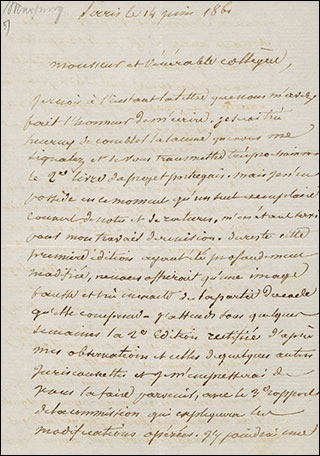 Paris le 14 juin 186
Monsieur et vénérable collègue,
Je reçois à l'instant la lettre que vous m'avez
fait l'honneur de m'écrire. Je serai très
heureux de combler la lacune que vous me
signalez, et de vous transmettre très prochainement
le 2e livre du projet portugais. Mais je ne
possède en ce moment qu'un seul exemplaire
couvert de notes et de ratures, m'en étant servi
pour mon travail de révision. Du reste cette
première édition ayant été profondément
modifiée, ne vous offrirait qu'une image
fausse et très inexacte de la partie du code
qu'elle comprend. J'attends sous quelques
semaines la 2e Edition rectifiée d'après
mes observations et celles de quelques autres
jurisconsultes et je m'empresserai de
vous la faire parvenir, avec le 2e rapport
de la commission qui expliquera les
modifications opérées. J'y joindrai une